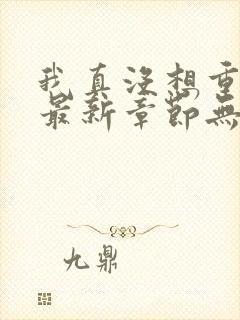 我真没想重
最新章节无
九鼎